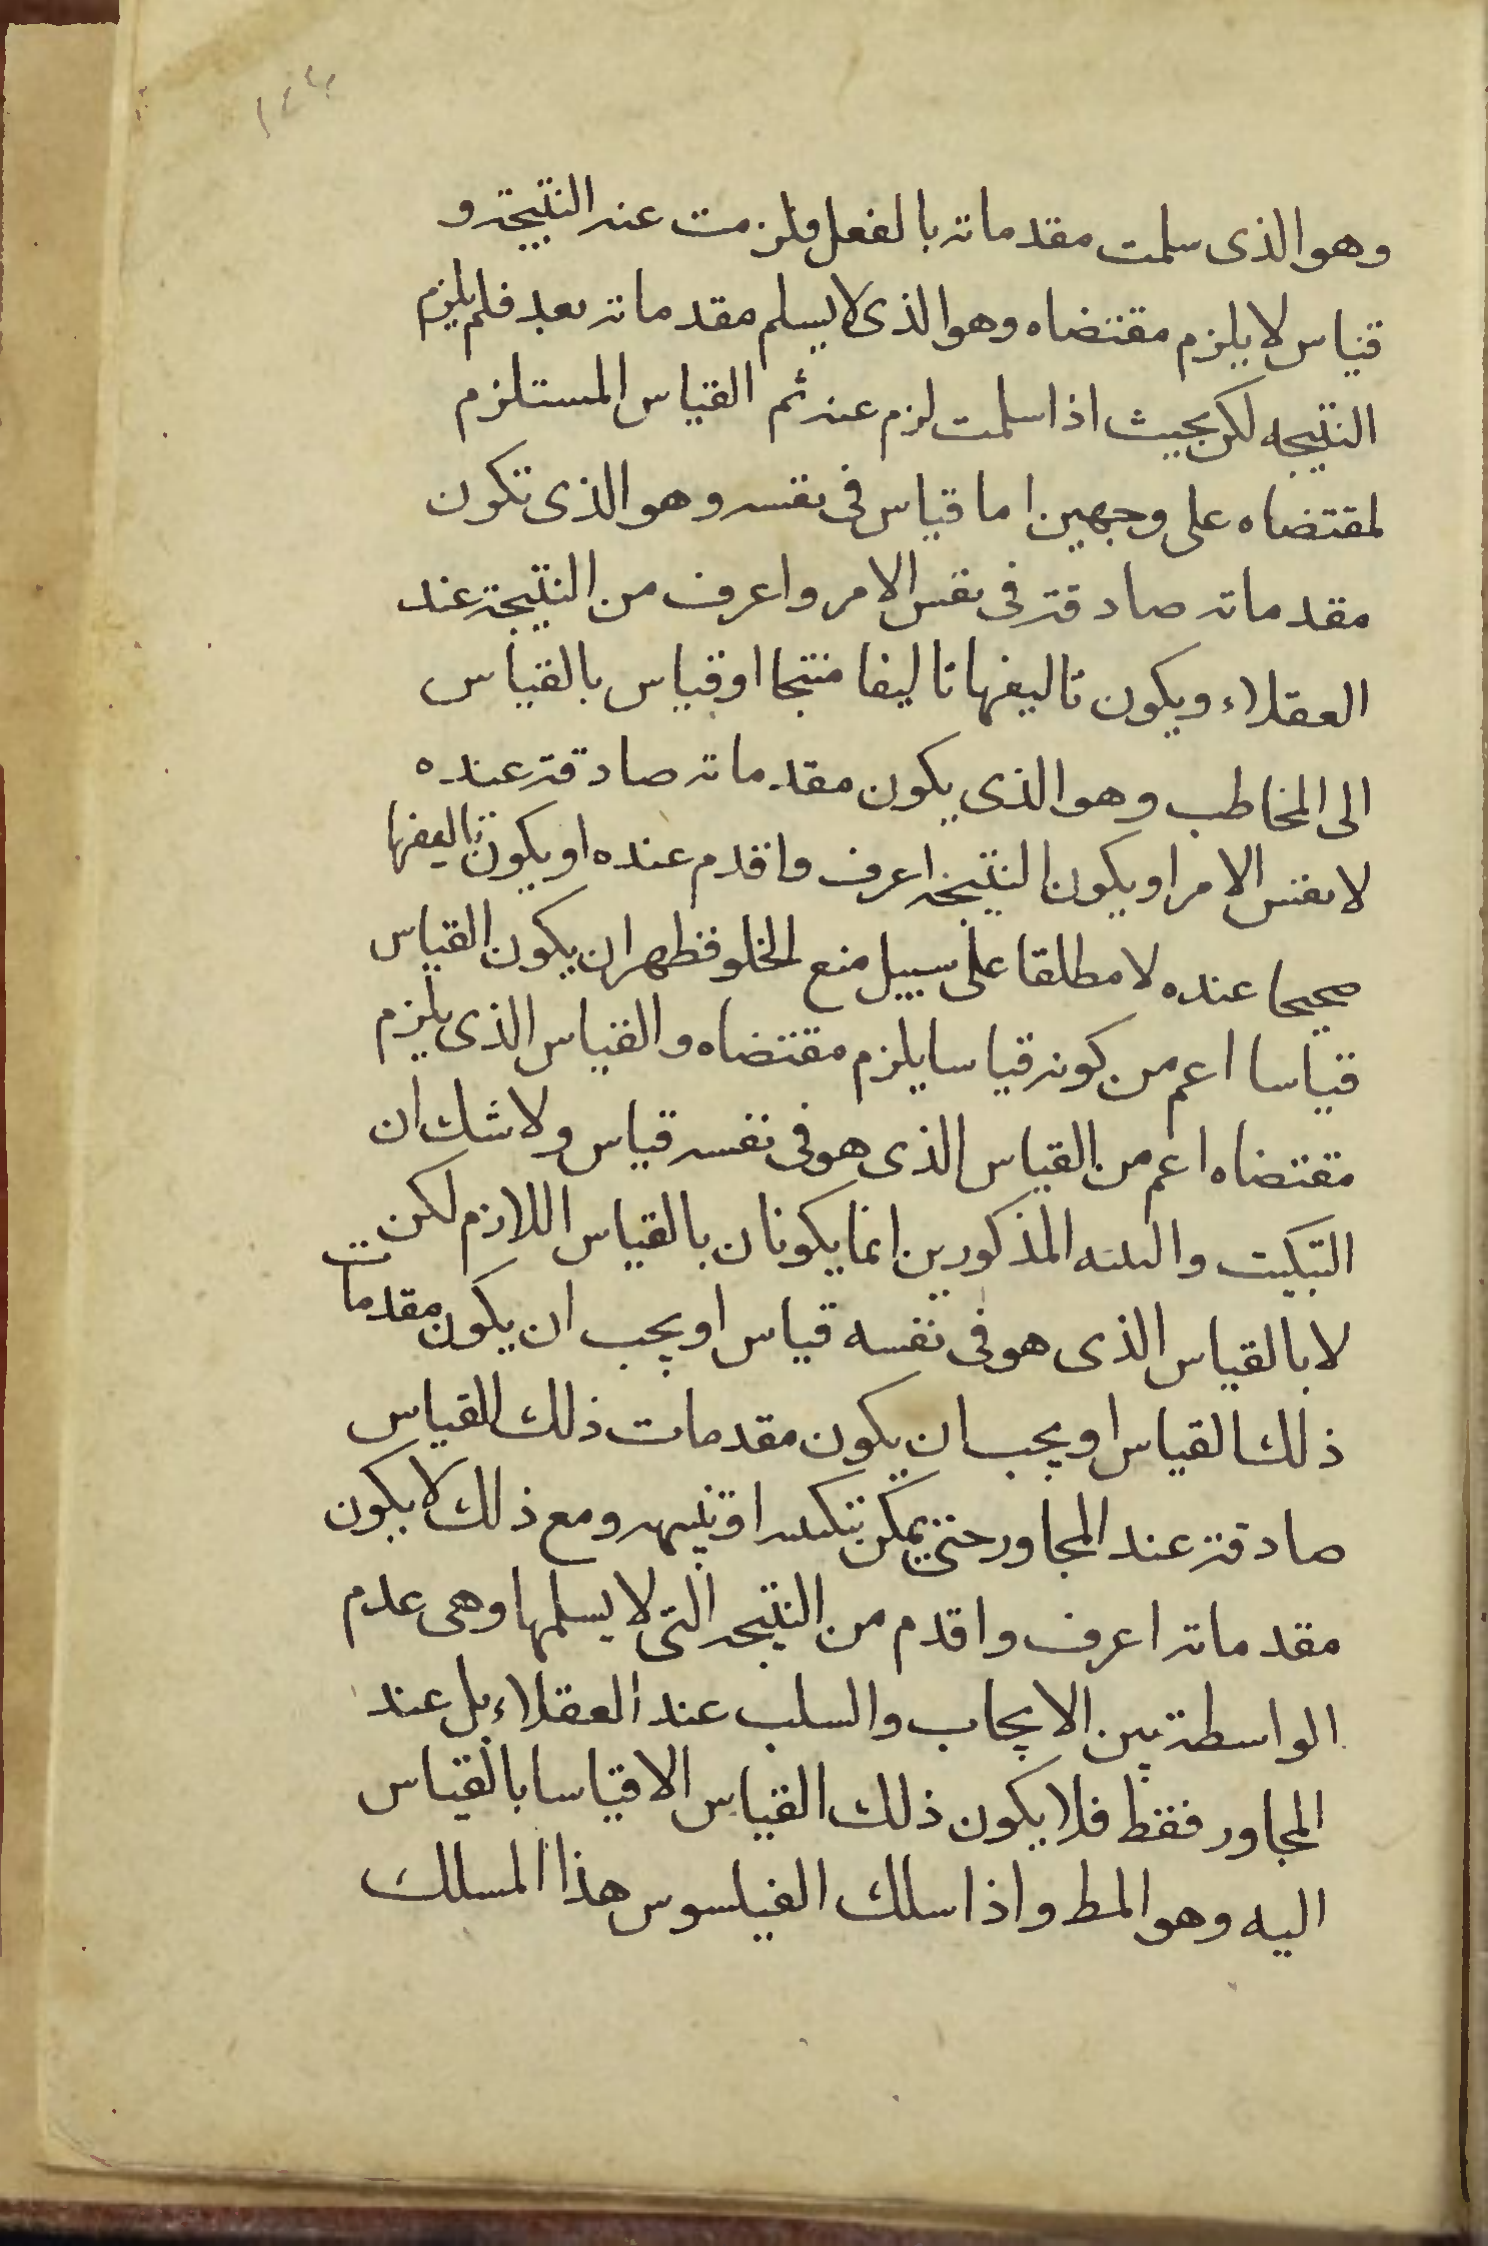 وهو الذى سلمت مقدماته بالفعل فلزمت عنه النتيجة و
قياس لا يلزم مقتضاه وهو الذى لا يسلم مقدماته بعد فلم يلزم
النتيجه لكن بحيث اذا سلمت لزم عنه ثم القياس المستلزم
لمقتضاه على وجهين اما قياس فى نفسه وهو الذى تكون
مقدماته صادقة فى نفس الامر واعرف من النتيجة عند
العقلاء ويكون تاليفها تاليفا منتجا او قياس بالقياس
الى المخاطب وهو الذى يكون مقدماته صادقة عنده
لا نفس الامر او يكون النتيجة اعرف واقدم عنده او يكون تاليفها
صحيحا عنده لا مطلقا على سبيل منع الخلو فظهر ان يكون القياس
قياسا اعم من كونه قياسا يلزم مقتضاه والقياس الذى يلزم
مقتضاه اعم من القياس الذى هو فى نفسه قياس ولا شك ان
التبكيت والتنبيه المذكورين انما يكونان بالقياس اللازم لكن
لا بالقياس الذى هو فى نفسه قياس او يجب ان يكون مقدمات
ذلك القياس او يجب ان يكون مقدمات ذلك القياس
صادقة عند المجاور حتى يمكن تبكيته او تنبيهه ومع ذلك لا يكون
مقدماته اعرف واقدم من النتيجه التى لا يسلمها وهى عدم
الواسطة بين الايجاب والسلب عند العقلاء بل عند
المجاور فقط فلا يكون ذلك القياس الا قياسا بالقياس
اليه وهو المط واذا سلك الفيلسوس هذا المسلك